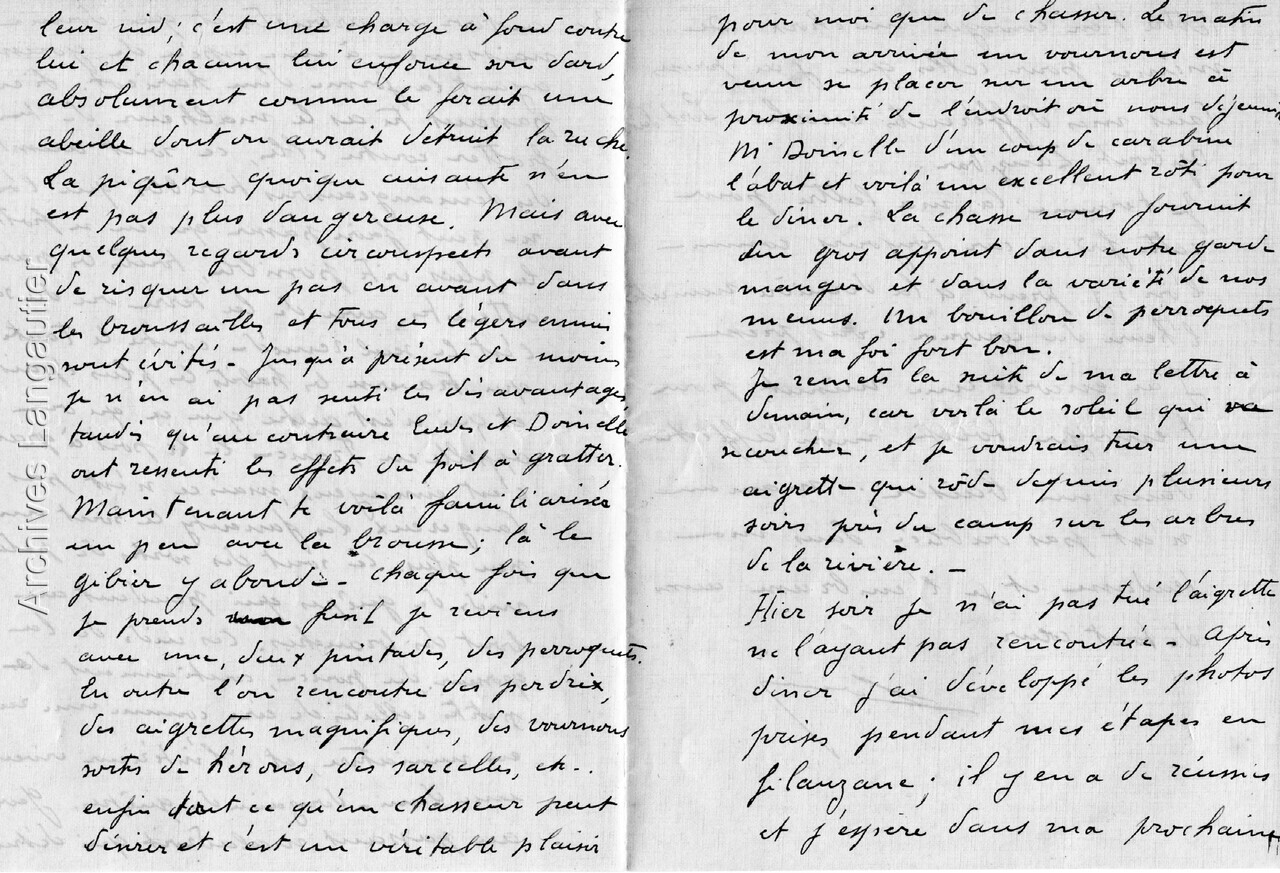 leur nid; c'est une charge à fond contre
lui et chacun lui enfonce son dard,
absolument comme le ferait une
abeille dont on aurait détruit la ruche.
La piqûre quoique cuisante n'en
est pas plus dangereuse. Mais avec
quelques regards circonspects avant
de risquer un pas en avant dans
les broussailles et tous ces légers ennuis
sont évités - Jusqu'à présent du moins
je n'en ai pas senti les désavantages
tandis qu'au contraire Eudes et Doinelle
ont ressenti les effets du poil à gratter.
Maintenant te voilà familiarisée
un peu avec la brousse; là le
gibier y abonde - chaque fois que
je prends fusil je reviens
avec une, deux pintades, des perroquets.
En outre l'on rencontre des perdrix,
des aigrettes magnifiques, des vournous
sortes de hérons, des sarcelles, etc..
enfin tout ce qu'un chasseur peut
désirer et c'est un véritable plaisir
pour moi que de chasser. Le matin
de mon arrivée un vournous est
venu se placer sur un arbre à
proximité de l'endroit où nous déjeunions
Mr Doinelle d'un coup de carabine
l'abat et voilà un excellent rôti pour
le dîner. La chasse nous fournit
d'un gros appoint dans notre garde
manger et dans la variété de nos
menus. Un bouillon de perroquets
est ma foi fort bon.
Je remets la suite de ma lettre à
demain, car voilà le soleil qui va
se coucher, et je voudrais tuer une
aigrette qui rôde depuis plusieurs
soirs près du camp sur les arbres
de la rivière. -
Hier soir je n'ai pas tué l'aigrette
ne l'ayant pas rencontrée - Après
dîner j'ai développé les photos
prises pendant mes étapes en
filanzane; il y en a de réussies
et j'espère dans ma prochaine
Archives Langautier